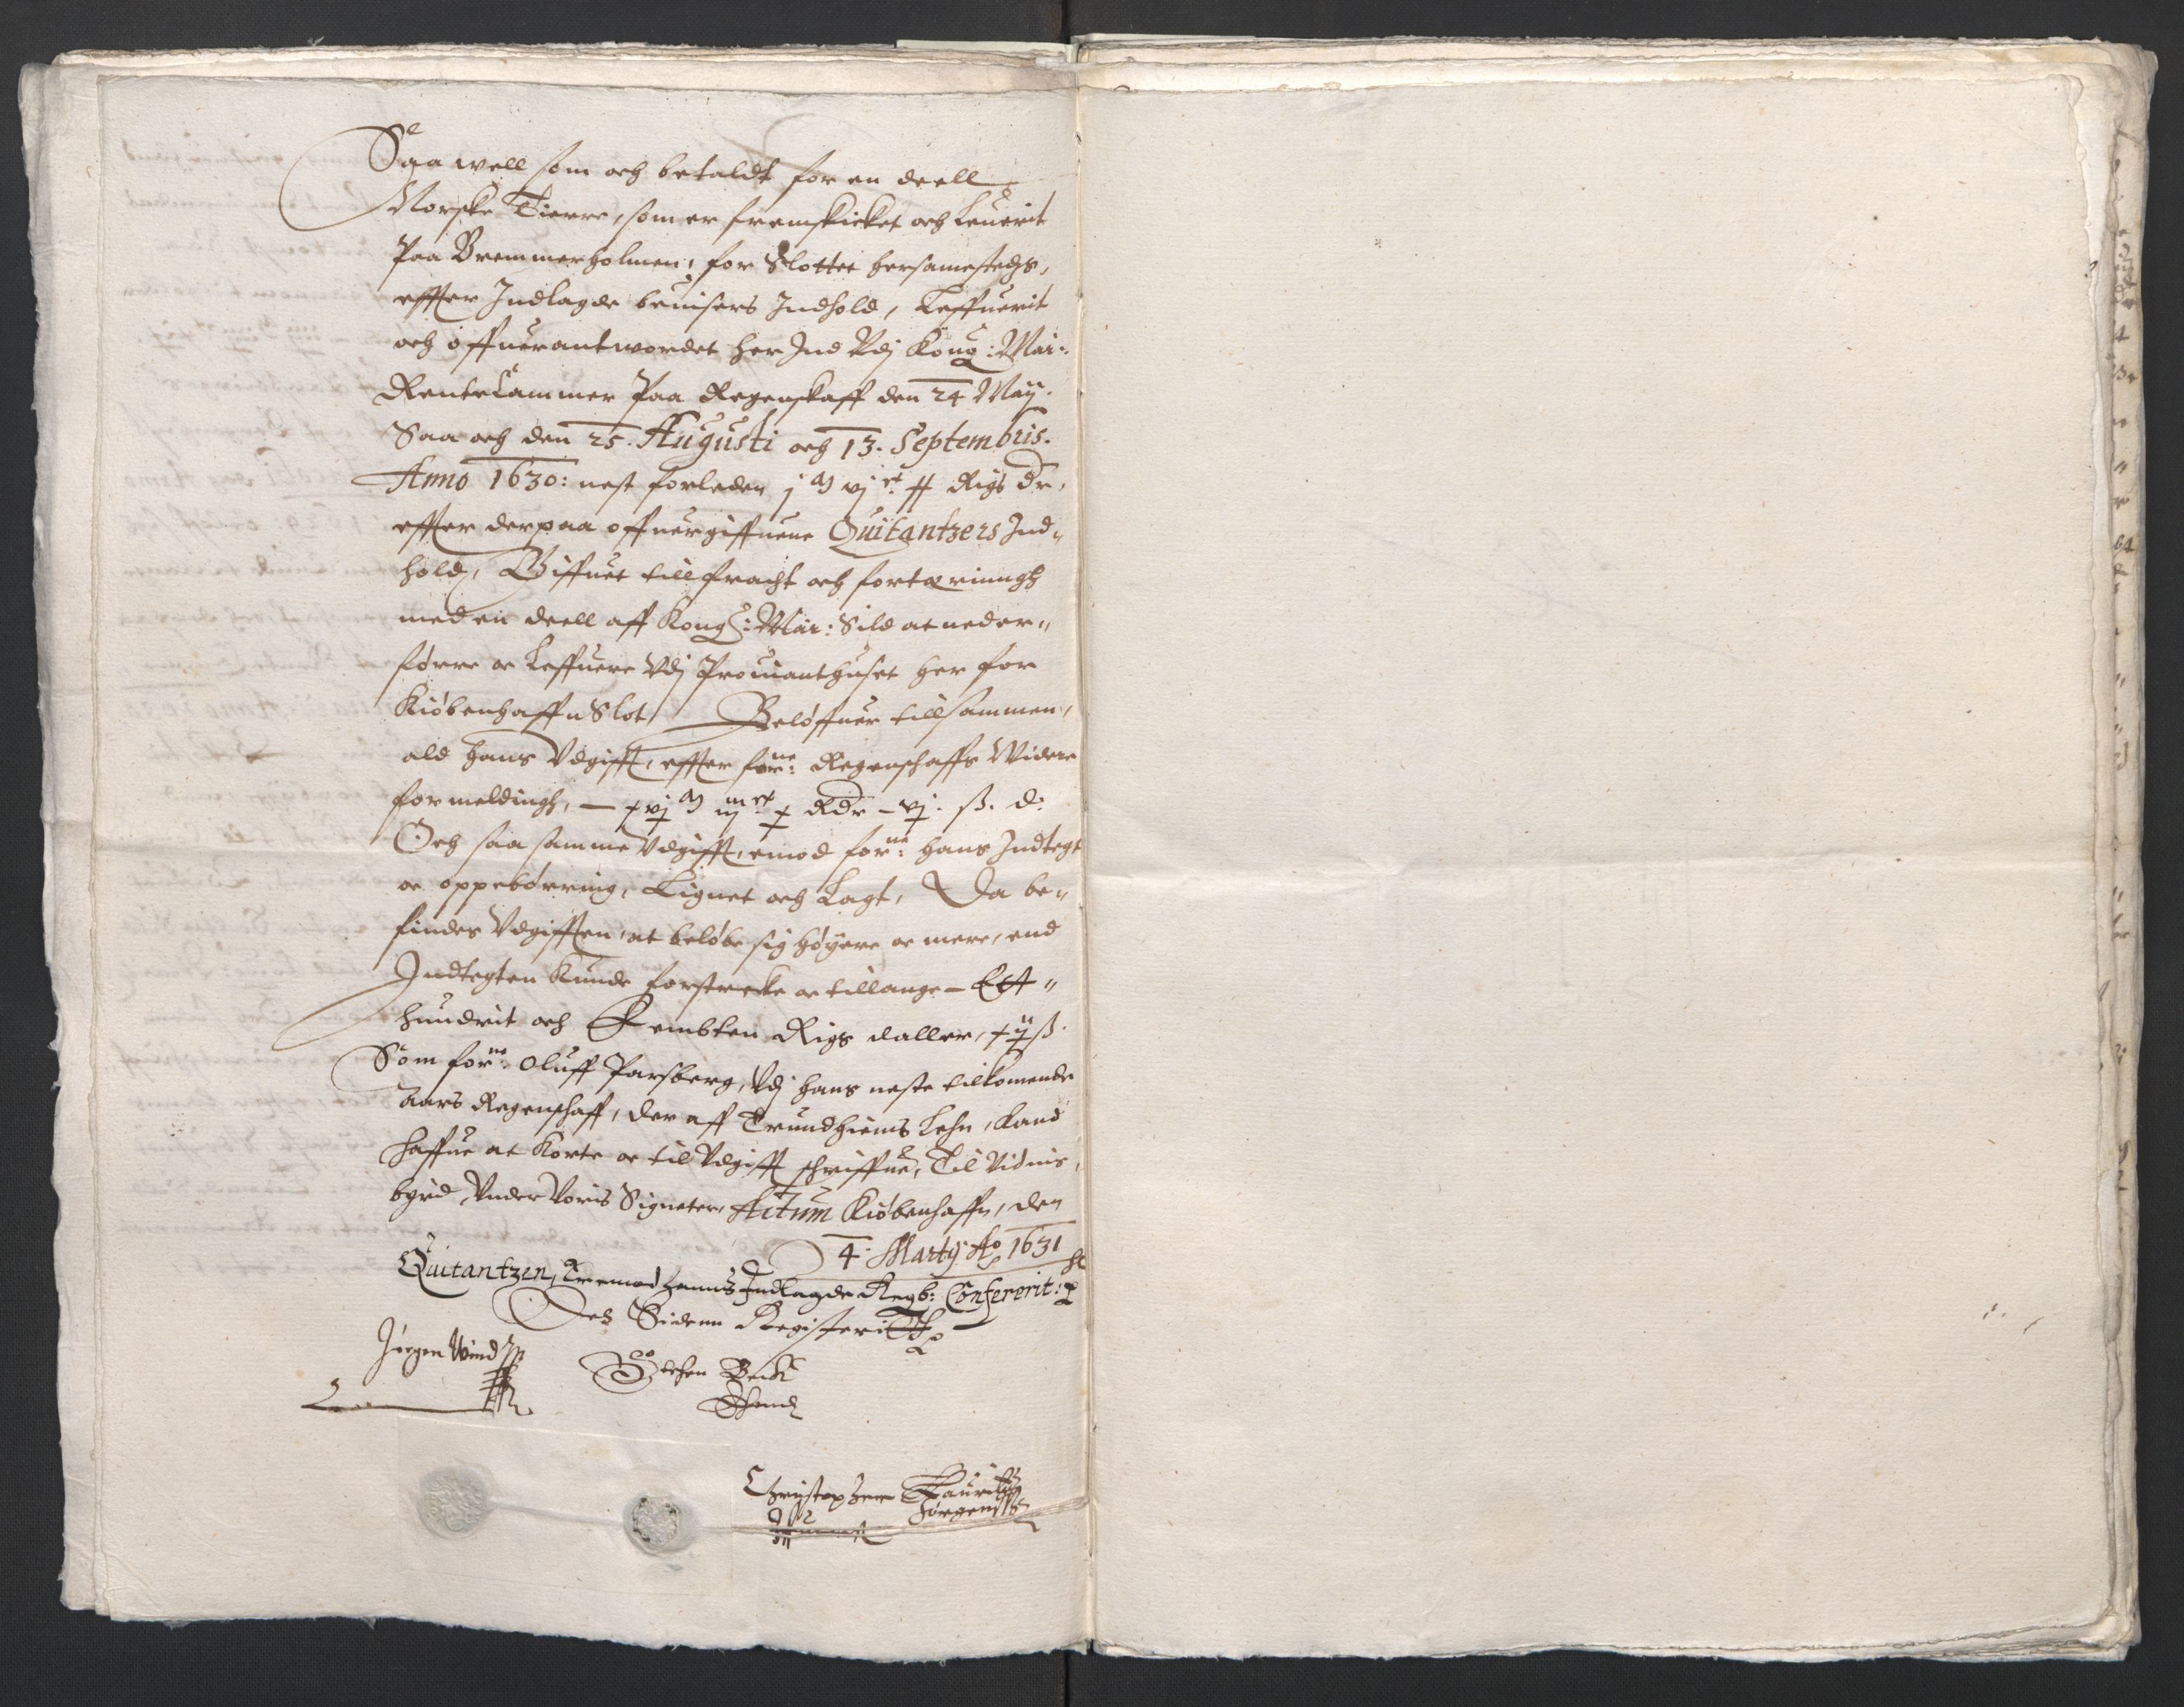 Saa well som och betaldt for en deell
Norske Tierre, som er fremskicket och Leuerit
Paa Bremmerholmen, for Slottet hersamestedz,
effter Indlagde beuisers Indhold, Leffuerit
och offuerantwordet her Ind Vdj Kong: Mai:
RenteCammer Paa Regenskaff den 24 Maij.
Saa och den 25. Augusti och 13. Septembris.
Anno 1630: nest forleden j M vj ct Rigs dr,
effter derpaa offuergiffuene Quitantzers Ind„
hold, Giffuet till fracht och fortæringh
med en deell aff Kong: Mai: Sild at neder„
førre oc Leffuere Vdj Prouianthuset her for
Kiøbenhaffn Slot, Beløffuer tillsammen,
ald hans Vdgifft, effter forne: Regenschaffs Widere
formeldingh, – xvj M iij ct x Rdr – vj. ß. d:
Och saa samme Vdgifft, emod forne: hans Indtegt
oc oppebørring, Lignet och Lagt, Da be„
findes Vdgifften, at beløbe sig høyere oc mere, end
Indtegten Kunde forstrecke oc tillange – Ett„
hundrit och Fembten Rigs daller, xij ß.
Som forne: Oluff Parsberg, Vdj hans neste tilkomende
Aars Regenschaff, der aff Trundhiems Lehn, Kand
haffue at Korte oc til Vdgifft schriffue, Til Vidnis,
byrd Vnder Voris Signeter, Actum Kiøbenhaffn, den
4. Martij Ao 1631
Quitantzen, Er emod hanns Indlagde Regb: Confererit:
Och Sidenn Registerit
Jørgen Wind
Stehen Beck
Christopher Lauritz
Jørgens